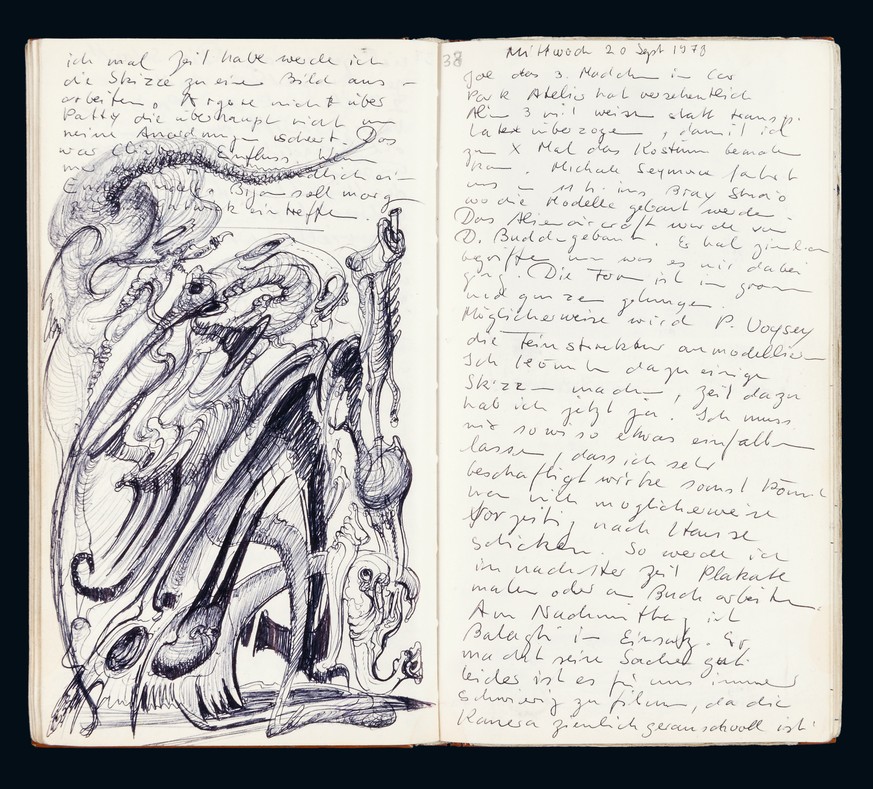 ich mal Zeit habe werde ich
die Skizze zu einem Bild aus-
arbeiten. Ärgere mich über
Patty die überhaupt nicht um
meine Anordnungen schert. Das
war Einfluss. Wenn
Bijan soll morg
eintreffen.
38
Mittwoch 20 Sept 1978
Joe das 3. Mädchen im Car
Park Atelier hat versehentlich
Alien 3 mit weissem statt transp.
Latex überzogen, damit ich
zum X Mal das Kostüm bemalen
kann. Michael Seymour fährt
uns ins Bray Studio
wo die Modelle gebaut werden.
Das Alienaircraft wurde von
D. Budd gebaut. Es hat ziemlich
begriffen um was es mir dabei
ging. Die Form ist im grossen
und ganzen gelungen.
Möglicherweise wird P. Voysey
die Feinstruktur anmodellieren
Ich könnte dazu einige
Skizzen machen, Zeit dazu
hab ich jetzt ja. Ich muss
mir sowiso etwas einfallen
lassen, dass ich sehr
beschäftigt wirke sonst könnte
man mich möglicherweise
vorzeitig nach Hause
schicken. So werde ich
in nächster Zeit Plakate
malen oder am Buch arbeiten.
Am Nachmittag ist
Balaghi im Einsatz. Er
macht seine Sache gut.
leider ist es für uns immer
schwierig zu filmen, da die
Kamera ziemlich geräuschvoll ist.